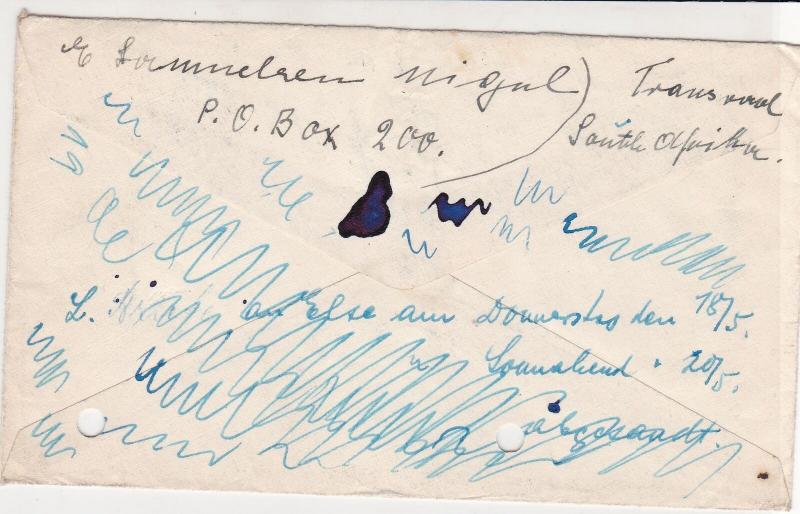 E Sammelsen Nigel) Transvaal
P.O. Box 200. South Afrika.
L. an Else am Donnerstag den 18/5.
Sonnabend " 20/5.
abgesandt.